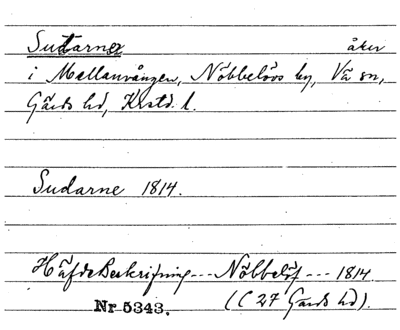 Sudarne åker
i Mellanvången, Nöbbelövs by, Vä sn,
Gärds hd, Krstd. l.
Sudarne 1814.
Häfde Beskrifning --- Nöbbelöf --- 1814.
Nr 5343. (C 27 Gärds hd).